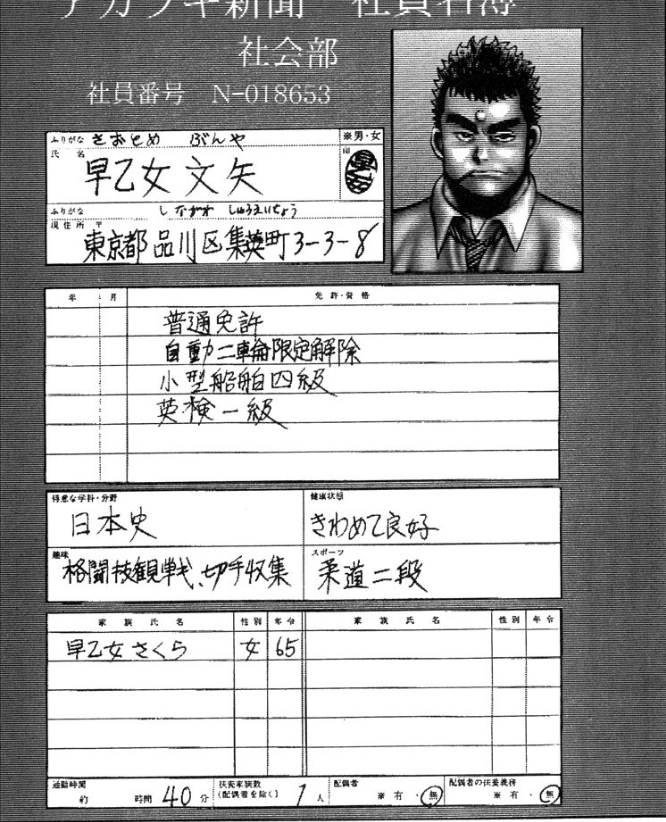 アカツキ新聞 社員名簿
社会部
社員番号 N-018653
ふりがな さおとめ ぶんや
※男・女
氏名 早乙女 文矢
印
ふりがな しながわ しゅうえいちょう
現住所 〒
東京都品川区集英町3-3-8
年 月 免許・資格
普通免許
自動二輪限定解除
小型船舶四級
英検一級
得意な学科・分野
日本史
健康状態
きわめて良好
趣味
格闘技観戦、切手収集
スポーツ
柔道二段
家族氏名 性別 年令 家族氏名 性別 年令
早乙女さくら 女 65
通勤時間
約 時間 40分
扶養家族数
(配偶者を除く) 1人
配偶者
※有・無
配偶者の扶養義務
※有・無